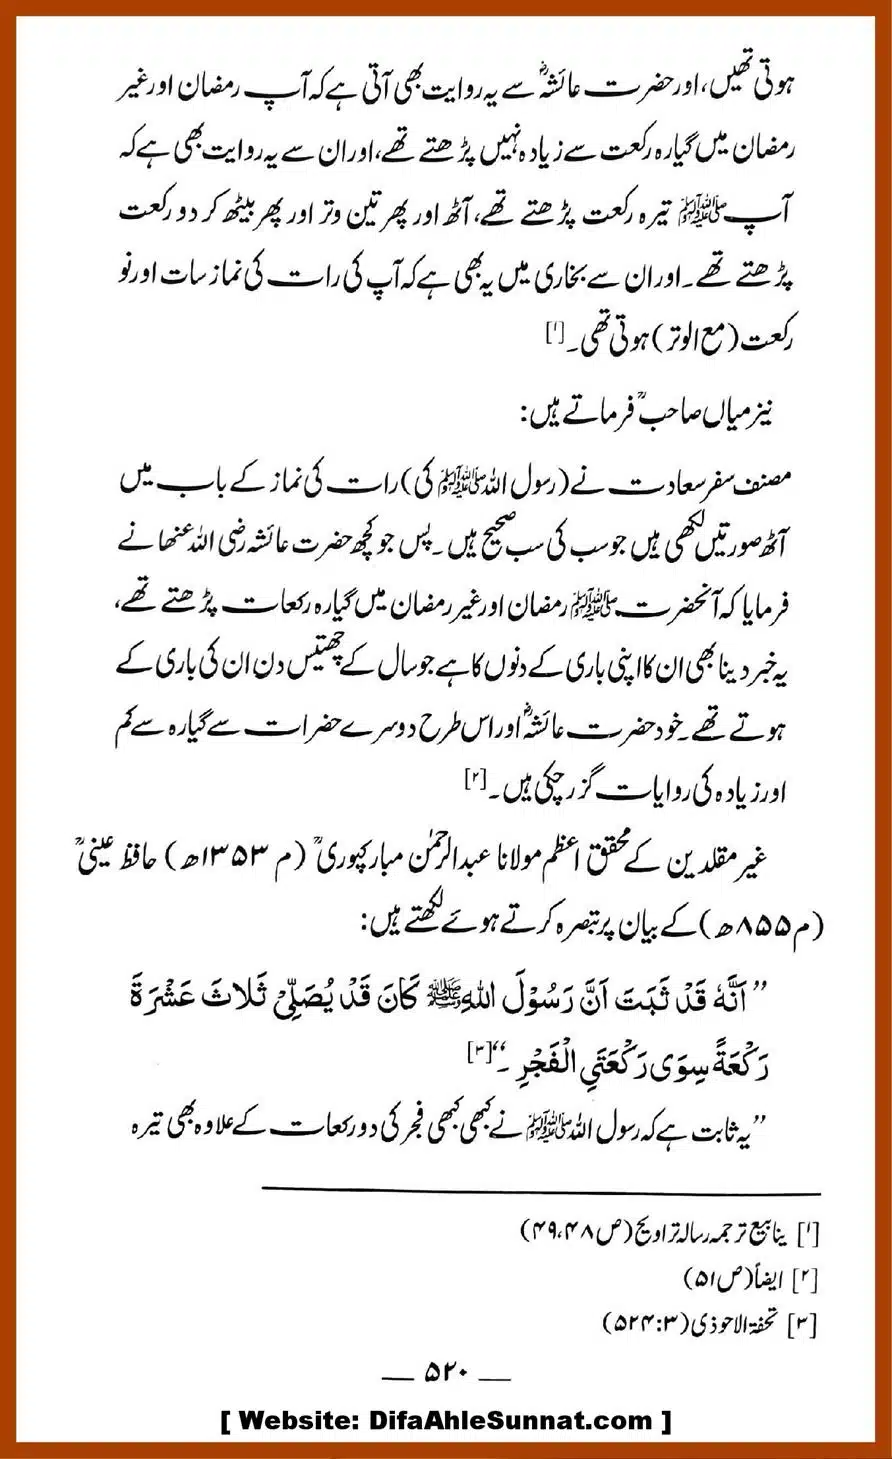 ہوتی تھیں، اور حضرت عائشہؓ سے یہ روایت بھی آتی ہے کہ آپ رمضان اور غیر
رمضان میں گیارہ رکعت سے زیادہ نہیں پڑھتے تھے، اور ان سے یہ روایت بھی ہے کہ
آپ ﷺ تیرہ رکعت پڑھتے تھے، آٹھ اور پھر تین وتر اور پھر بیٹھ کر دو رکعت
پڑھتے تھے۔ اور ان سے بخاری میں یہ بھی ہے کہ آپ کی رات کی نماز سات اور نو
رکعت (مع الوتر) ہوتی تھی۔ [۱]
نیز میاں صاحبؒ فرماتے ہیں:
مصنف سفر سعادت نے (رسول اللہ ﷺ کی) رات کی نماز کے باب میں
آٹھ صورتیں لکھی ہیں جو سب کی سب صحیح ہیں۔ پس جو کچھ حضرت عائشہ رضی اللہ عنھا نے
فرمایا کہ آنحضرت ﷺ رمضان اور غیر رمضان میں گیارہ رکعات پڑھتے تھے،
یہ خبر دینا بھی ان کا اپنی باری کے دنوں کا ہے جو سال کے چھتیس دن ان کی باری کے
ہوتے تھے۔ خود حضرت عائشہؓ اور اس طرح دوسرے حضرات سے گیارہ سے کم
اور زیادہ کی روایات گزر چکی ہیں۔ [۲]
غیر مقلدین کے محقق اعظم مولانا عبدالرحمٰن مبارکپوریؒ (م ۱۳۵۳ھ) حافظ عینیؒ
(م ۸۵۵ھ) کے بیان پر تبصرہ کرتے ہوئے لکھتے ہیں:
”اَنَّهٗ قَدْ ثَبَتَ اَنَّ رَسُوْلَ اللهِ ﷺ كَانَ قَدْ يُصَلِّيْ ثَلاثَ عَشْرَةَ
رَكْعَةً سِوَى رَكْعَتَيِ الْفَجْرِ ۔“ [۳]
”یہ ثابت ہے کہ رسول اللہ ﷺ نے کبھی کبھی فجر کی دو رکعات کے علاوہ بھی تیرہ
[۱] ینابیع ترجمہ رسالہ تراویح (ص ۴۸، ۴۹)
[۲] ایضاً (ص ۵۱)
[۳] تحفۃ الاحوذی (۳: ۵۲۴)
— ۵۲۰ —
[ Website: DifaAhleSunnat.com ]